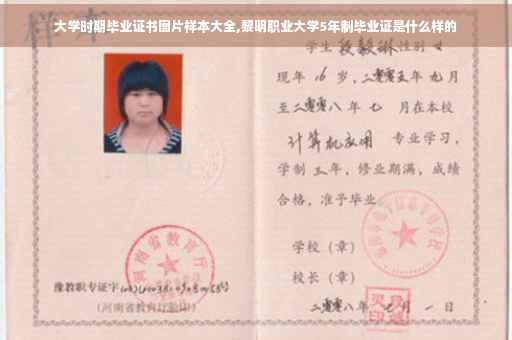 大学时期毕业证书图片样本大全,黎明职业大学5年制毕业证是什么样的
样本
学生 段毅琳 性别 女
现年 16 岁,二零零五年 九月
至二零零八年 七 月在本校
计算机应用 专业学习,
学制 三 年,修业期满,成绩
合格,准予毕业
学校(章)
校长(章)
河南省教育厅
豫教职专证字
(河南省教育厅验印)
二零零八年 七 月 一 日